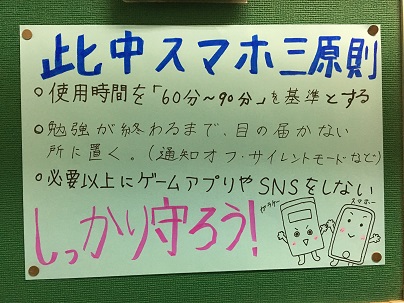 此中スマホ三原則
○使用時間を「60分～90分」を基準とする
○勉強が終わるまで、目の届かない
所に置く。(通知オフ・サイレントモードなど)
○必要以上にゲームアプリやSNSをしない
しっかり守ろう!
スマホー